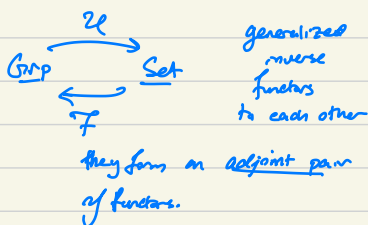 U
Grp Set
F
generalized
inverse
functors
to each other
they form an adjoint pair
of functors.